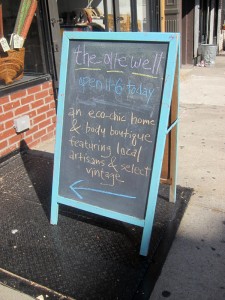 the olive well
open 11-6 today
an eco-chic home
& body boutique
featuring local
artisans & select
vintage